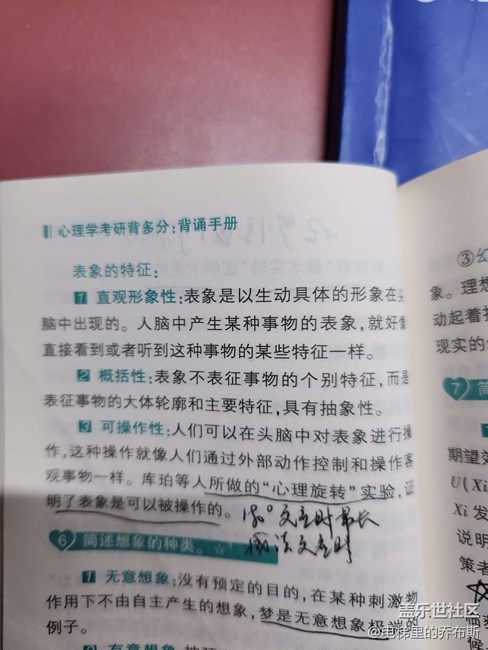 心理学考研背多分:背诵手册
表象的特征:
1 直观形象性:表象是以生动具体的形象在头
脑中出现的。人脑中产生某种事物的表象,就好像
直接看到或者听到这种事物的某些特征一样。
2 概括性:表象不表征事物的个别特征,而是
表征事物的大体轮廓和主要特征,具有抽象性。
3 可操作性:人们可以在头脑中对表象进行操
作,这种操作就像人们通过外部动作控制和操作客
观事物一样。库珀等人所做的“心理旋转”实验,证
明了表象是可以被操作的。
180°反应时最长
6 简述想象的种类。☆
1 无意想象:没有预定的目的,在某种刺激物
作用下不由自主产生的想象,梦是无意想象极端的
例子。
2 有意想象
③幻
象。理想
动起着
现实的
7 简
期望效
U(Xi
Xi 发
说明
策者
候
盖乐世社区
@电梯里的乔布斯